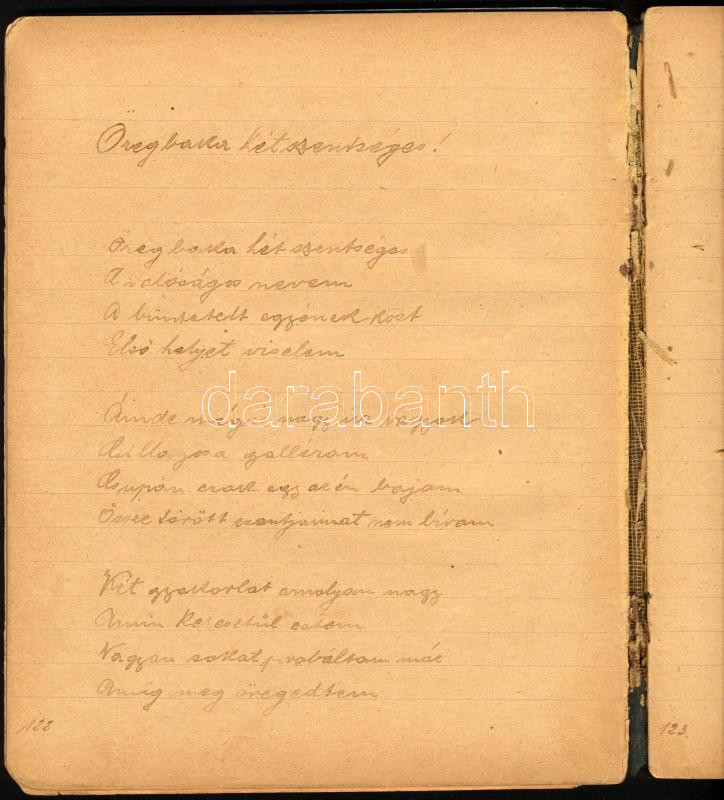 Öreg baka hét szentséges!
öreg baka hét szentséges
A valóságos nevem
A büntetett egyének közt
Első helyet viselem
Ámde még nagyon vagyok
Csillagos a gallérom
Csupán csak egy az én bajom
Össze törött csontjaimat nem bírom
Két gyakorlat amolyan nagy
Amin keresztül estem
Nagyon sokat probáltam már
Amíg meg öregedtem
122
123
darabanth